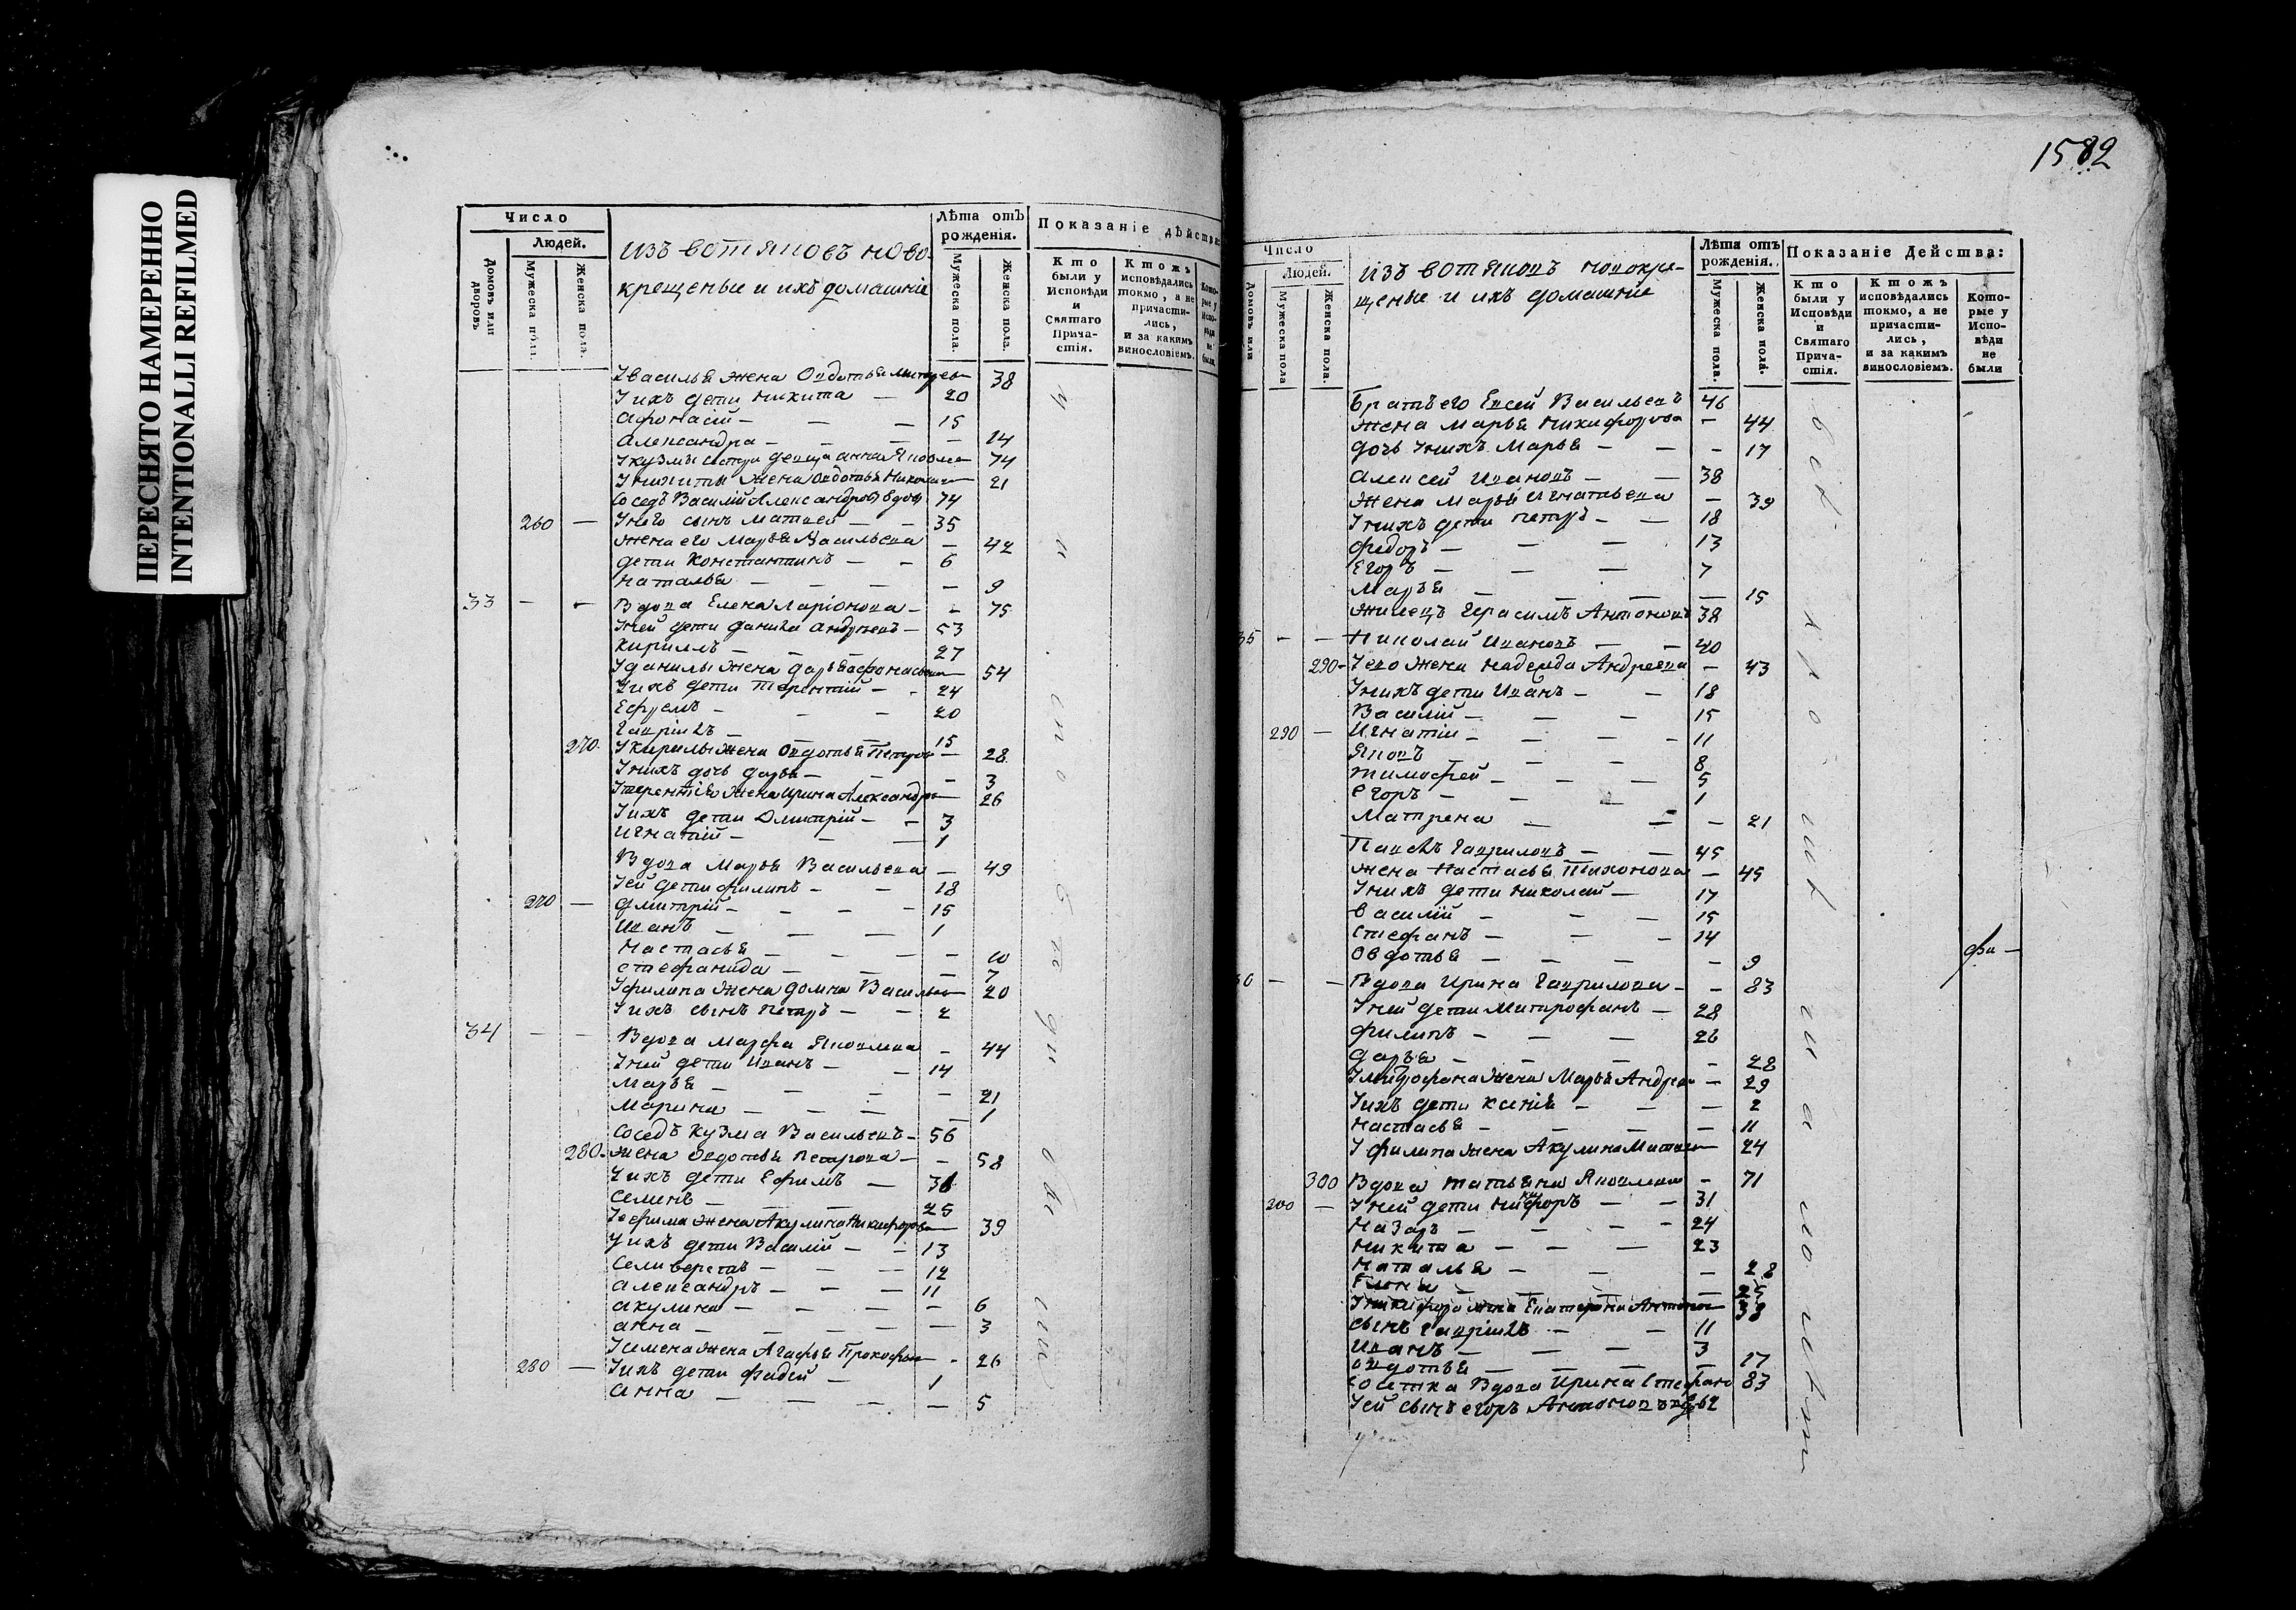 ПЕРЕСНЯТО НАМЕРЕННО
INTENTIONALLI REFILMED
Число
Людей.
Домовъ или дворовъ
Мужеска пола.
Женска пола.
Изъ вотяковъ ново-
крещеные и ихъ домашніе
Лѣта отъ рожденія.
Мужеска пола.
Женска пола.
Показаніе дѣйства:
Кто были у Исповѣди и Святаго Причастія.
Ктожъ исповѣдались токмо, а не причастились, и за какимъ винословіемъ.
Которые у Исповѣди не были.
У василья жена Овдотья 38
У ихъ дети никита — 20
афонасій — — — 15
александра — — — — 14
У кузмы девица анна 74
У никиты жена Овдотья 21
Соседъ Василій Александровъ вдовъ 74
260 — У него сынъ матвей — — 35
жена его Марья Васильева — 42
дети Константинъ — — 6
наталья — — — — 9
33 — — Вдова Елена Ларіонова — — 75
У ней дети данила андреевъ — 53
кириллъ — — — 27
У данилы жена дарья афонасьева 54
У ихъ дети терентій — — 24
Ефремъ — — — 20
Гавріилъ — — — 15
270 — У кирилы жена Овдотья Петрова — 28
У нихъ дочь дарья — — — 3
У терентія жена ирина Александрова 26
У ихъ дети Дмитрій — — 3
игнатій — — — 1
Вдова Марья Васильева — 49
У ей дети филипъ — — 18
270 — дмитрій — — — — 15
Иванъ — — — 1
настасья — — — — 10
стефанида — — — 7
У филипа жена домна Васильева 20
У ихъ сынъ петръ — — 2
34 — — Вдова марфа Яковлева — 44
У ней дети Иванъ — — 14
Марья — — — — 21
Марина — — — — 1
Соседъ кузма Васильевъ — 56
280 — жена овдотья петрова — — 58
У ихъ дети Ефимъ —
Семенъ — — — 25
У ефима жена Акулина Никифорова 39
У ихъ дети Василій — — 13
Селиверстъ — — — 12
александръ — — — 11
акулина — — — — 6
анна — — — — — 3
У семена жена Агафья Прокофьева — 26
280 — У ихъ дети фадей — 1
анна — — — — 5
1582
Число
Людей.
Домовъ или
Мужеска пола
Женска пола.
Изъ вотяковъ новокре-
щеные и ихъ домашніе
Лѣта отъ рожденія.
Мужеска пола.
Женска пола.
Показаніе Дейсшва:
Кто были у Исповѣди и Святаго Причастія.
Ктожъ исповѣдались токмо, а не причастились, и за какимъ винословіемъ.
Которые у Исповѣди не были
Братъ его Евсей Васильевъ 46
жена Марья никифорова — 44
дочь У нихъ Марья — — — 17
алексей Ивановъ — — 38
жена Марья Игнатьева — 39
У нихъ дети петръ — — 18
федоръ — — — 13
Егоръ — — — 7
Марья — — — — 15
жилецъ Герасимъ Антоновъ 38
35 — — Николай Ивановъ — — 40
290 — У ево жена надежда Андреева — 43
У нихъ дети Иванъ — — 18
Василій — — — 15
290 — Игнатій — — — — 11
Яковъ — — — 8
тимофей — — — 5
Егоръ — — — 1
Матрена — — — 21
Павелъ Гавриловъ — — 45
жена настасья Тихонова — 45
У нихъ дети николай — 17
василій — — — 15
стефанъ — — — 14
Овдотья — — — — 9
— — Вдова Ирина Гаврилова — — 83
У ней дети Митрофанъ — 28
филипъ — — — 26
дарья — — — — 28
У митрофана жена Марья Андреева — 29
У ихъ дети ксенія — — — 2
настасья — — — — 11
У филипа жена Акулина 24
300 Вдова татьяна Яковлева — 71
200 — У ней дети никифоръ — — 31
Назаръ — — — — 24
Никита — — — 23
Наталья — — — 28
Елена — — — — 25
У никифора жена Екатерина Антонова 38
сынъ Гавріилъ — — 11
Иванъ — — — 3
овдотья — — — — 17
соседка Вдова Ирина Стефанова 83
У ей сынъ егоръ Антоновъ 62